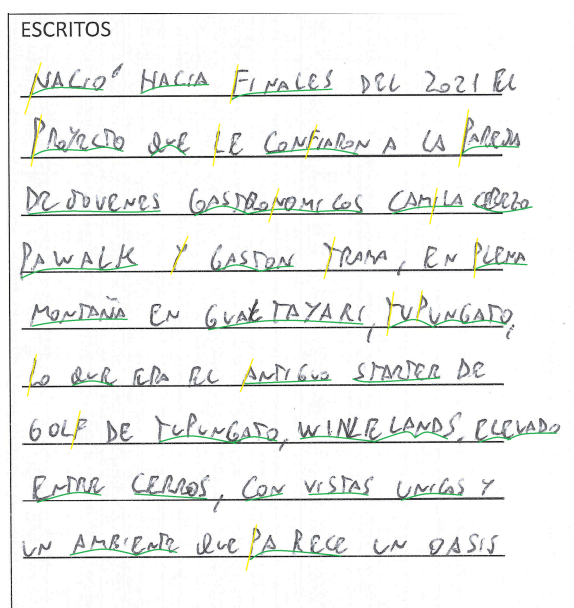 ESCRITOS
NACIÓ HACIA FINALES DEL 2021 EL
PROYECTO QUE LE CONFIARON A LA PAREJA
DE JOVENES GASTRONOMICOS CAMILA CEREZO
PAWALK Y GASTON TRAMA, EN PLENA
MONTAÑA EN GUALTAYARI, TUPUNGATO,
LO QUE ERA EL ANTIGUO STARTER DE
GOLF DE TUPUNGATO, WINELANDS, ELEVADO
ENTRE CERROS, CON VISTAS UNICAS Y
UN AMBIENTE QUE PARECE UN OASIS